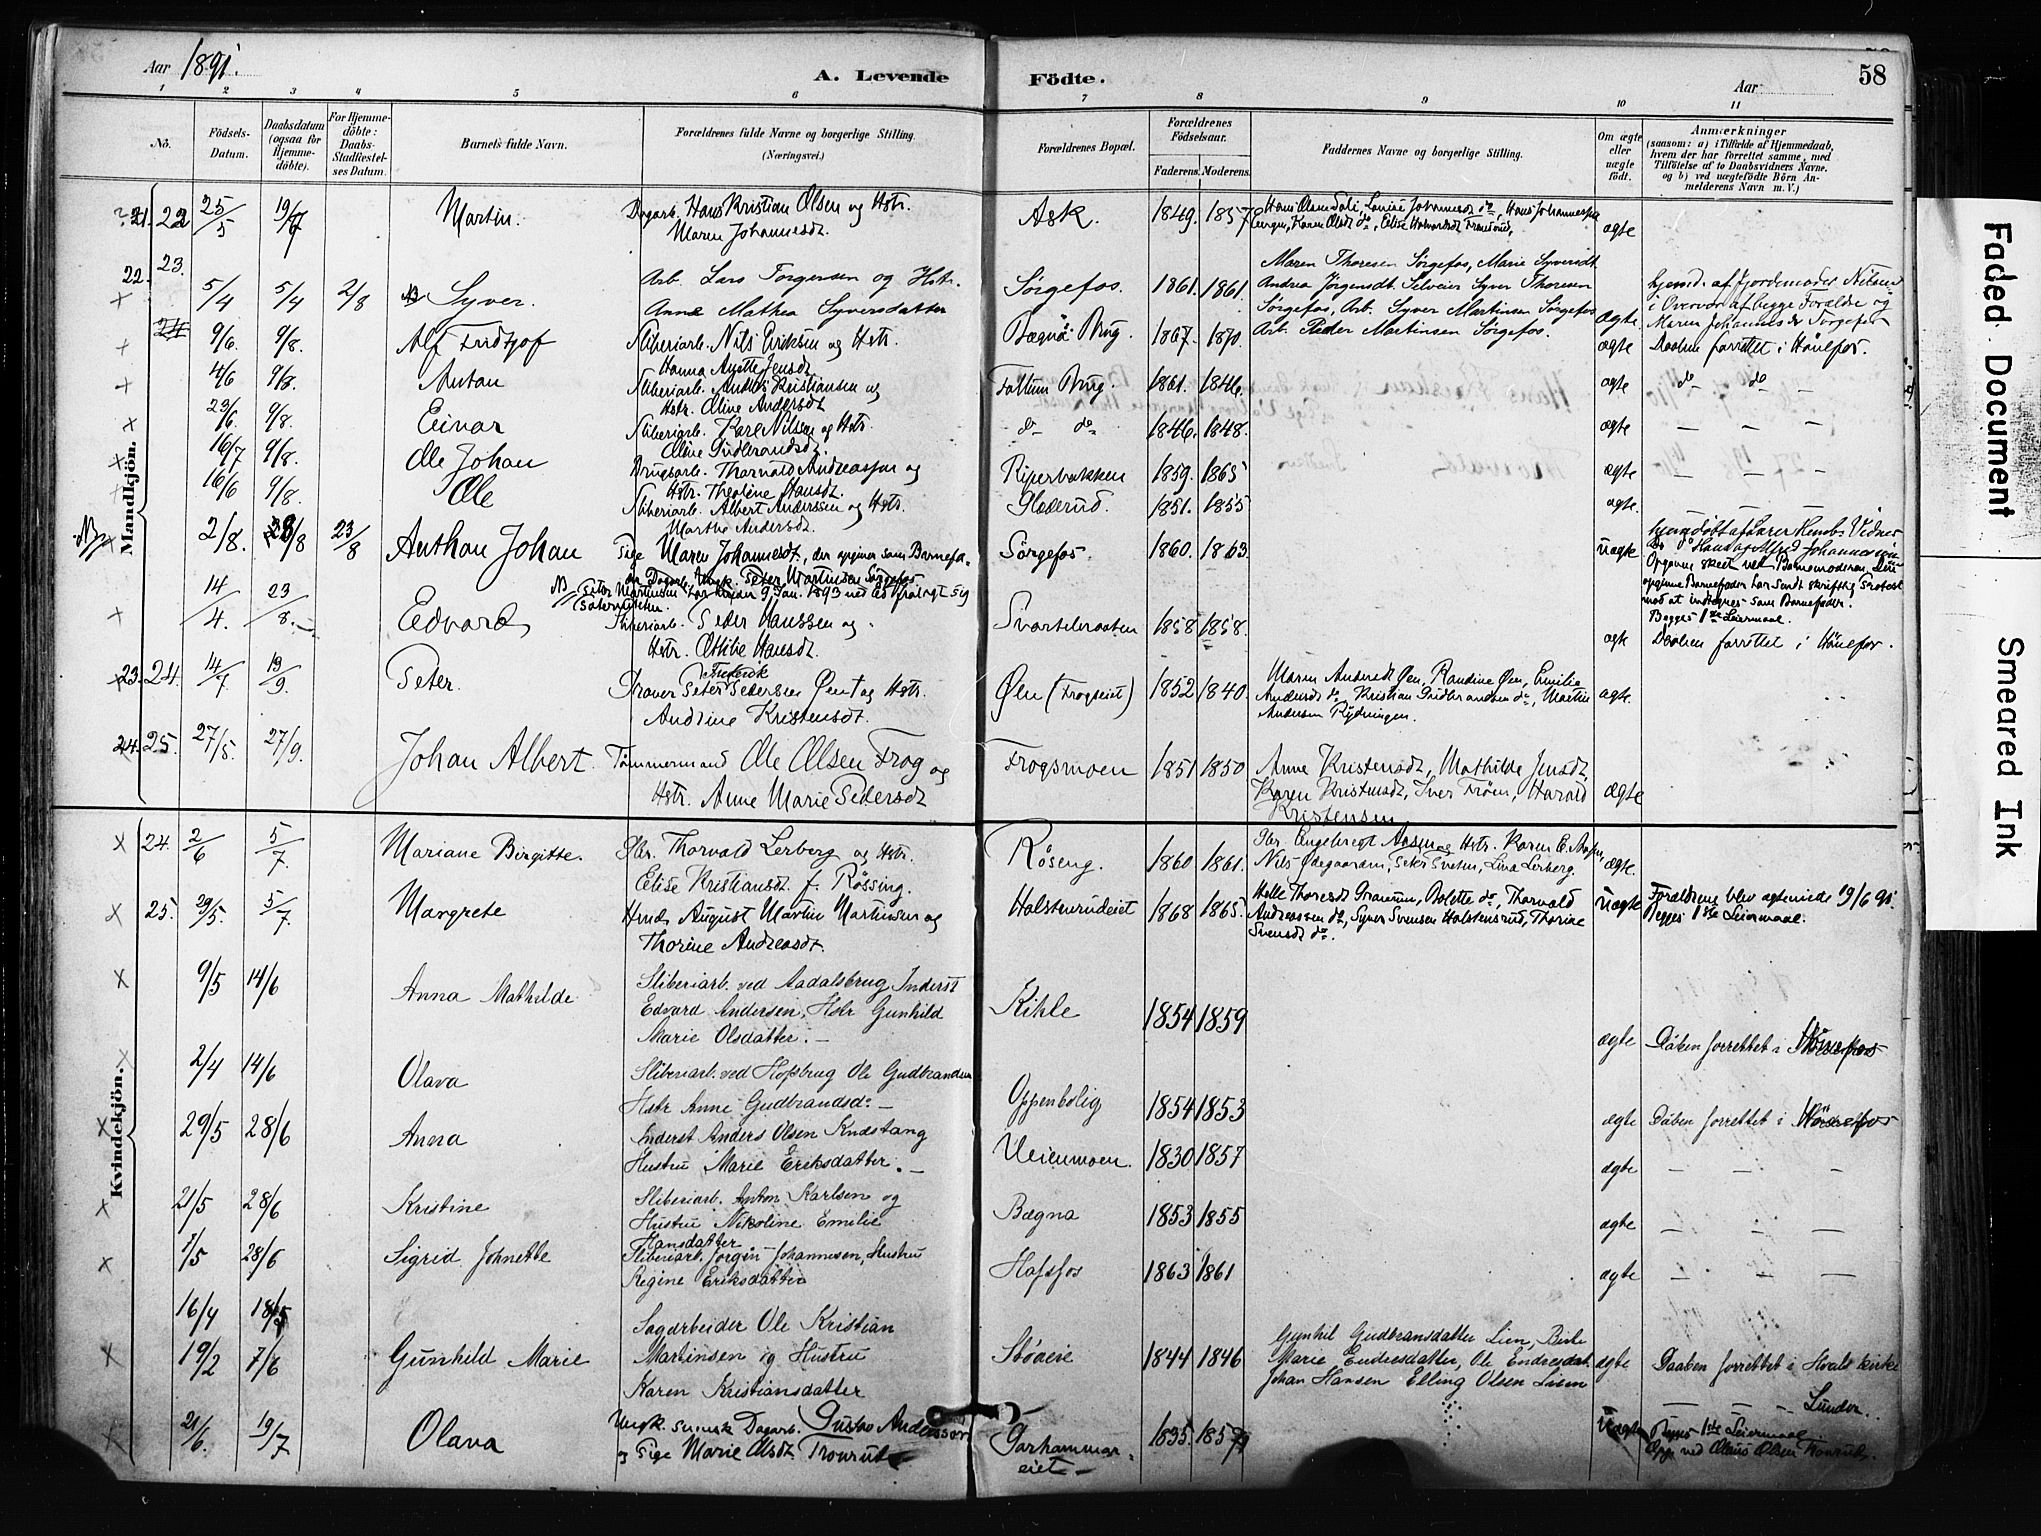 Aar 1891.
A. Levende
Födte.
Aar
58
1 2 3 4 5 6 7 8 9 10 11
No.
Födsels-Datum.
Daabsdatum (ogsaa for Hjemme-döbte).
For Hjemme-döbte: Daabs-Stadfæstel-ses Datum.
Barnets fulde Navn.
Forældrenes fulde Navne og borgerlige Stilling. (Næringsvei.)
Forældrenes Bopæl.
Forældrenes Födselsaar.
Faderens. Moderens.
Faddernes Navne og borgerlige Stilling.
Om ægte eller uægte födt.
Anmærkninger
(saasom: a) i Tilfælde af Hjemmedaab, hvem der har forrettet samme, med Tilföielse af to Daabsvidners Navne, og b) ved uægtefödte Börn An-melderens Navn m. V.)
Mandkjön.
21. 22 25/5 19/7 Martin. Dagarb. Hans Kristian Olsen og Hstr. Maren Johannesdt. Ask. 1849. 1857 ægte
22. 23. 5/4 5/4 2/8 Syver. Arb. Lars Torgersen og Hstr. Anne Mathea Syversdatter Sørgefos. 1861. 1861. Maren Thoresen Sørgefos, Marie Syversdt Andrea Jörgensdt. Syver Thoresen Sørgefos, Arb. Syver Martinsen Sørgefos Arb. Peder Martinsen Sørgefos. ægte.
24 9/6. 9/8. Alf Fridtjof Sliberiarb. Nils Eriksen og Hstr. Hanna Anette Jensdt Bægna Brug. 1867. 1870. ægte Daaben forrettet i Hönefos.
4/6 9/8. Anton Sliberiarb. Anders Kristiansen og Hstr. Oline Andersdt Fattum Brug. 1861. 1846. ægte do do
23/6. 9/8. Einar Sliberiarb. Kare Nilsen og Hstr. Oline Gudbrandsdt. do do 1846. 1848. ægte — — —
16/7 9/8. Ole Johan Brugsarb. Thorvald Andreassen og Hstr. Theoline Hansdt. Riperbakken 1859. 1865 ægte — — —
16/6 9/8. Ole Sliberiarb. Albert Anderssen og Hstr. Marthe Andersdt. Gloserud. 1851. 1855 ægte
NB 2/8. 23/8 23/8 Anthon Johan Pige Maren Johannesdt, der opgiver som Barnefader Dagarb. Ungk. Peter Martinsen Sørgefos Sörgefos 1860. 1863 uægte
NB Peter Martinsen har under 9 Jan. 1893 ved Ed fralagt sig Paterniteten.
Begges 1ste Leiermaal.
14/4. 23/8. Edvard Sliberiarb. Peder Hanssen og Hstr. Othilie Hansdt. 1858 1858. ægte Daaben forrettet i Hönefos.
23. 24. 14/7 13/9. Peter. Prøver Peter Frederik Pedersen Øen og Hstr. Andrine Kristensdt. Øen (Frogseiet) 1852 1840. Maren Andersdt Øen, Randine Øen, Emilie Andersdt do Kristian Gudbrandsen do, Martin Andersen Rydningen. ægte.
24. 25. 27/5. 27/9. Johan Albert. Tömmermand Ole Olsen Frog og Hstr. Anne Marie Pedersdt Frogsmoen 1851 1850 Anne Kristensdt, Mathilde Jensdt, Karen Kristensdt, Iver Fröen, Harald Kristensen ægte
Kvindekjön.
24. 2/6 5/7. Mariane Birgitte. Gbr. Thorvald Lerberg og Hstr. Elise Kristiansdt. f. Røssing. Røseng. 1860 1861. ægte.
25. 29/5. 5/7. Margrete Hmd. August Martin Martinsen og Thorine Andreasdt. Holstenrudeiet 1868 1865. Helle Thoresdt Granum, Bolette do, Thorvald Andreassen do, Syver Svensen Holstensrud, Thorine Svensdt do. uægte Forældrene blev ægteviede 19/6 91. Begges 1ste Leiermaal.
9/5 14/6 Anna Mathilde Sliberiarb. ved Aadalsbrug Inderst Edvard Andersen, Hstr Gunhild Marie Olsdatter. — Kihle 1854 1859 ægte Dåben forrettet i Hönefos
2/4 14/6 Olava Sliberiarb. ved Hofsbrug Ole Gudbrandsen Hstr Anne Gudbrandsd. — Oppenbolig 1854 1853 ægte Dåben forrettet i Hönefos
29/5 28/6 Anna Inderst Anders Olsen Knestang Hustru Marie Eriksdatter. — Veienmoen. 1830 1857 ægte — — —
21/5 28/6 Kristine Sliberiarb. Anton Karlsen og Hustru Nikoline Emilie Hansdatter Bægna 1853 1855 ægte — — —
1/5 28/6 Sigrid Johnette Sliberiarb. Jorgen Johannesen, Hustru Regine Eriksdatter Hofsfos 1863 1861 ægte — — —
16/4 18/5
19/2 7/6 Gunhild Marie Sagarbeider Ole Kristian Martinsen og Hustru Karen Kristiansdatter Støveie 1844 1846 Gunhil Gudbransdatter Lien, Birte Marie Endresdatter, Ole Endresdat. Johan Hansen Elling Olsen Lien ægte Daaben forrettet i Hvals kirke
— — — Lunder.
21/6. 19/7 Olava Ungk. svensk Dagarb. Gustav Andersson og Pige Marie Olsdt. Tronrud Garhammar-eiet — 1835. 1857 uægte 1ste Leiermaal. Opg. ved Olaus Olsen Tronrud.
Faded Document
Smeared Ink